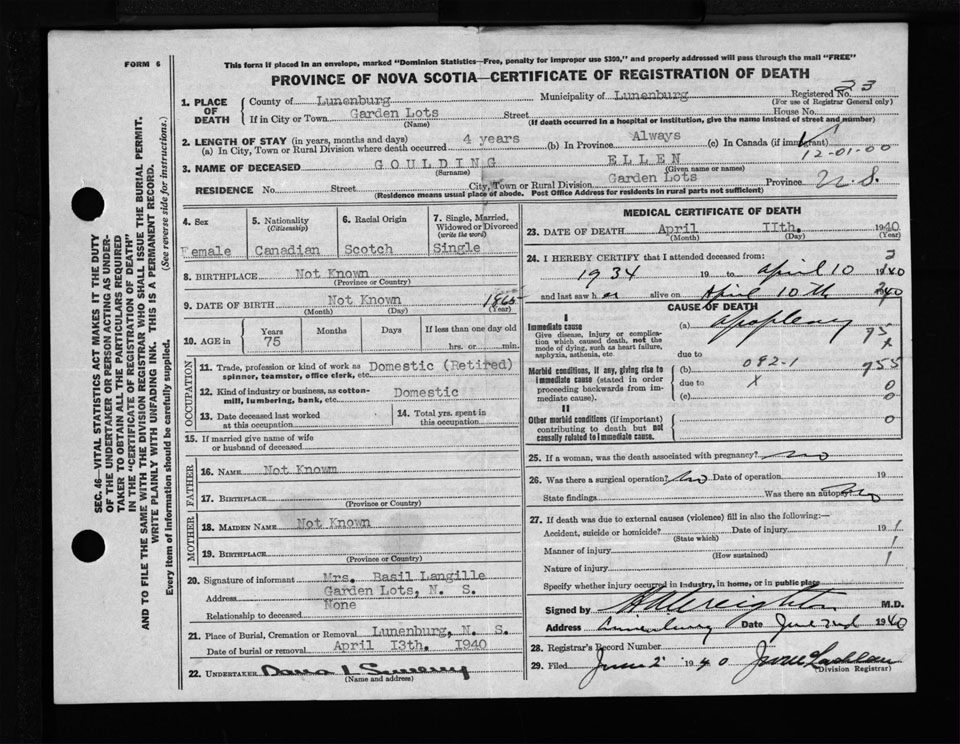 FORM 6
This form if placed in an envelope, marked "Dominion Statistics—Free, penalty for improper use $300," and properly addressed will pass through the mail "FREE"
PROVINCE OF NOVA SCOTIA—CERTIFICATE OF REGISTRATION OF DEATH
SEC. 46—VITAL STATISTICS ACT MAKES IT THE DUTY
OF THE UNDERTAKER OR PERSON ACTING AS UNDER-
TAKER TO OBTAIN ALL THE PARTICULARS REQUIRED
IN THE "CERTIFICATE OF REGISTRATION OF DEATH"
AND TO FILE THE SAME WITH THE DIVISION REGISTRAR WHO SHALL ISSUE THE BURIAL PERMIT.
WRITE PLAINLY WITH UNFADING INK. THIS IS A PERMANENT RECORD.
Every item of information should be carefully supplied. (See reverse side for instructions.)
1. PLACE OF DEATH
County of Lunenburg Municipality of Lunenburg Registered No. 23
(For use of Registrar General only)
If in City or Town Garden Lots Street House No.
(Name) (If death occurred in a hospital or institution, give the name instead of street and number)
2. LENGTH OF STAY (in years, months and days)
(a) In City, Town or Rural Division where death occurred 4 years (b) In Province Always (c) In Canada (if immigrant)
12-01-00
3. NAME OF DECEASED GOULDING ELLEN
(Surname) (Given name or names)
RESIDENCE No. Street City, Town or Rural Division Garden Lots Province N.S.
(Residence means usual place of abode. Post Office Address for residents in rural parts not sufficient)
4. Sex
Female
5. Nationality
(Citizenship)
Canadian
6. Racial Origin
Scotch
7. Single, Married,
Widowed or Divorced
(write the word)
Single
8. BIRTHPLACE Not Known
(Province or Country)
9. DATE OF BIRTH Not Known 1865
(Month) (Day) (Year)
10. AGE in Years Months Days If less than one day old
75 hrs. or min.
OCCUPATION
11. Trade, profession or kind of work as Domestic (Retired)
spinner, teamster, office clerk, etc.
12. Kind of industry or business, as cotton- Domestic
mill, lumbering, bank, etc.
13. Date deceased last worked
at this occupation
14. Total yrs. spent in
this occupation
15. If married give name of wife
or husband of deceased
FATHER
16. NAME Not Known
17. BIRTHPLACE
(Province or Country)
MOTHER
18. MAIDEN NAME Not Known
19. BIRTHPLACE
(Province or Country)
20. Signature of informant Mrs. Basil Langille
Address Garden Lots, N. S.
Relationship to deceased None
21. Place of Burial, Cremation or Removal Lunenburg, N. S.
Date of burial or removal April I3th. I940
22. UNDERTAKER
(Name and address)
MEDICAL CERTIFICATE OF DEATH
23. DATE OF DEATH April IIth. 1940
(Month) (Day) (Year)
24. I HEREBY CERTIFY that I attended deceased from:
1934 19 to April 10 1940
and last saw her alive on April 10th 1940
CAUSE OF DEATH
I
Immediate cause
Give disease, injury or complica-
tion which caused death, not the
mode of dying, such as heart failure,
asphyxia, asthenia, etc.
(a) apoplexy
due to
Morbid conditions, if any, giving rise to
immediate cause (stated in order
proceeding backwards from im-
mediate cause).
(b) 082-1
due to x
(c)
955
0
0
0
II
Other morbid conditions (if important)
contributing to death but not
causally related to immediate cause.
25. If a woman, was the death associated with pregnancy? No
26. Was there a surgical operation? No Date of operation 19
State findings Was there an autopsy? No
27. If death was due to external causes (violence) fill in also the following:—
Accident, suicide or homicide? Date of injury 19
(State which)
Manner of injury
(How sustained)
Nature of injury
Specify whether injury occurred in industry, in home, or in public place
Signed by H A Creighton M.D.
Address Lunenburg Date June 2nd 1940
28. Registrar's Record Number
29. Filed June 2 1940
(Division Registrar)